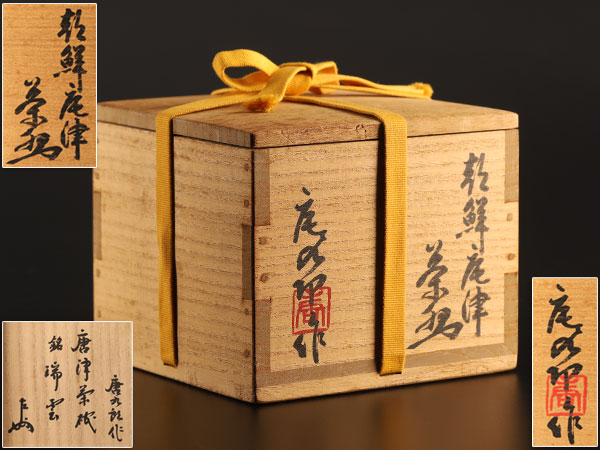 朝鮮唐津
茶碗
朝鮮唐津
茶碗
唐九郎作
唐九郎作
唐九郎作
唐津茶碗
銘 瑞雲